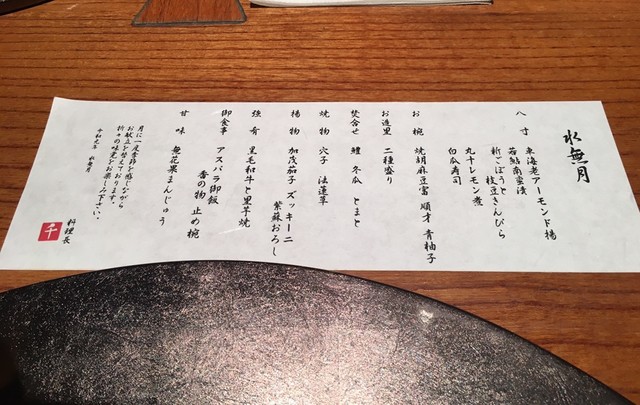 水無月
八寸 車海老アーモンド揚
若鮎南蛮漬
新ごぼうと枝豆きんぴら
丸十レモン煮
白瓜寿司
お椀 焼胡麻豆富 順才 青柚子
お造里 二種盛り
焚合せ 鱧 冬瓜 とまと
焼物 穴子 法蓮草
揚物 加茂茄子 ズッキーニ
紫蘇おろし
強肴 黒毛和牛と里芋焼
御食事 アスパラ御飯
香の物 止め椀
甘味 無花果まんじゅう
月に一度季節を感じながら
お献立を替えております。
折々の味覚をお楽しみ下さい。
令和元年 水無月
料理長
千